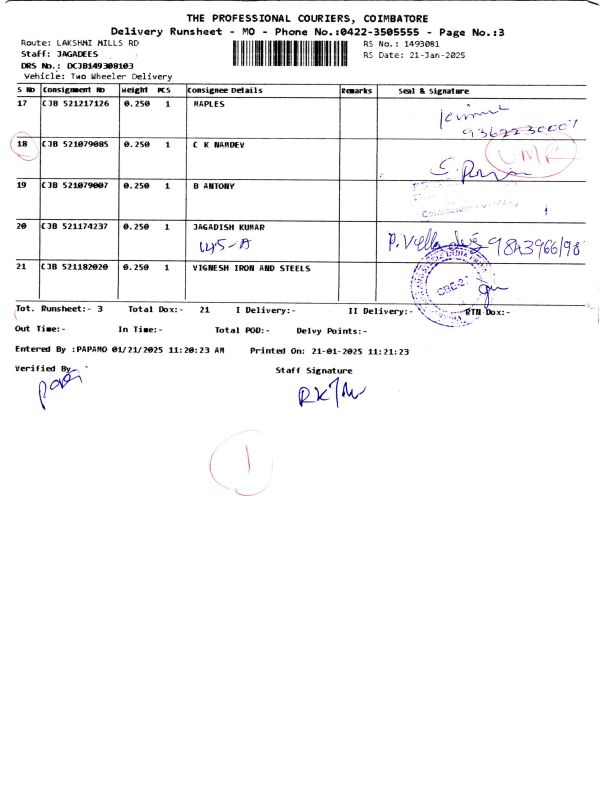 THE PROFESSIONAL COURIERS, COIMBATORE
Delivery Runsheet - MO - Phone No.:0422-3505555 - Page No.:3
Route: LAKSHMI MILLS RD
RS No.: 1493081
Staff: JAGADEES
RS Date: 21-Jan-2025
DRS No.: DCJB149308103
Vehicle: Two Wheeler Delivery
S No Consignment No Weight PCS Consignee Details Remarks Seal & Signature
17 CJB 521217126 0.250 1 MAPLES
18 CJB 521079085 0.250 1 C K NAMDEV
19 CJB 521079007 0.250 1 B ANTONY
20 CJB 521174237 0.250 1 JAGADISH KUMAR
145-A
21 CJB 521182020 0.250 1 VIGNESH IRON AND STEELS
Tot. Runsheet:- 3 Total Dox:- 21 I Delivery:- II Delivery:- RTN Dox:-
Out Time:- In Time:- Total POD:- Delvy Points:-
Entered By :PAPAMO 01/21/2025 11:20:23 AM Printed On: 21-01-2025 11:21:23
Verified By
Staff Signature
1